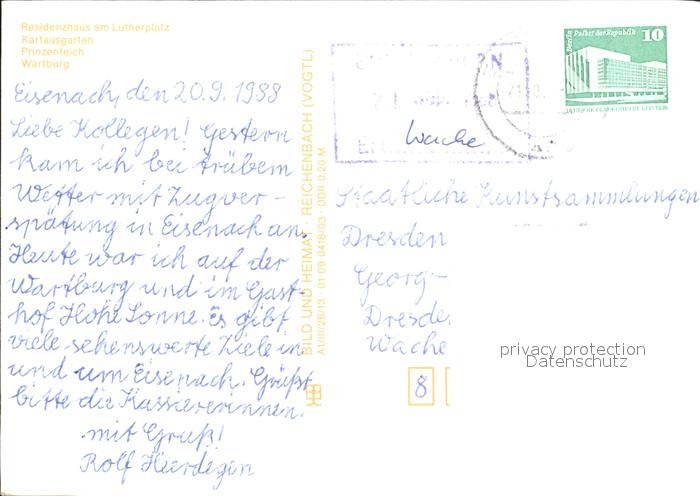 Residenzhaus am Lutherplatz
Kartausgarten
Prinzenteich
Wartburg
Eisenach, den 20.9.1988
Liebe Kollegen! Gestern
kam ich bei trübem
Wetter mit Zugver-
spätung in Eisenach an.
Heute war ich auf der
Wartburg und im Gast-
hof Hohe Sonne. Es gibt
viele sehenswerte Ziele in
und um Eisenach. Grüßt
bitte die Kassiererinnen.
mit Gruß!
Rolf Heerdegen
BILD UND HEIMAT · REICHENBACH (VOGTL)
A1/III/26/13 · 01 09 0418/03 · DDR 0,20 M
Wache
Berlin Palast der Republik
10
DEUTSCHE DEMOKRATISCHE REPUBLIK
Staatliche Kunstsammlungen
Dresden
Georg-
Dresde
Wache
8
privacy protection
Datenschutz